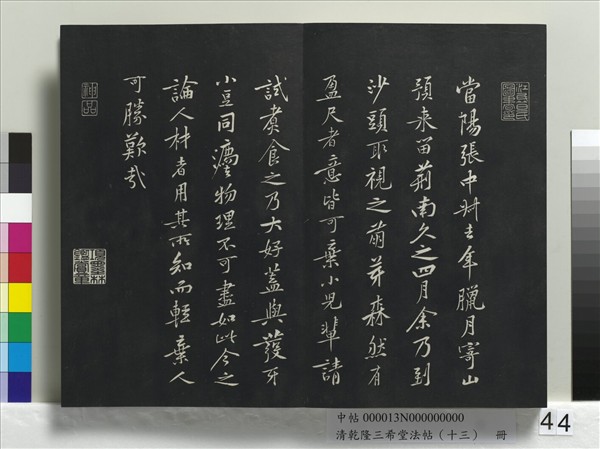 當陽張中叔去年臘月寄山
預来留荊南久之四月余乃到
沙頭取視之萌芽森然有
盈尺者意皆可棄小兒輩請
試煑食之乃大好蓋與發牙
小豆同灋物理不可盡如此今之
論人材者用其所知而輕棄人
可勝歎哉
神品
中帖 000013N000000000
清乾隆三希堂法帖(十三) 冊
44